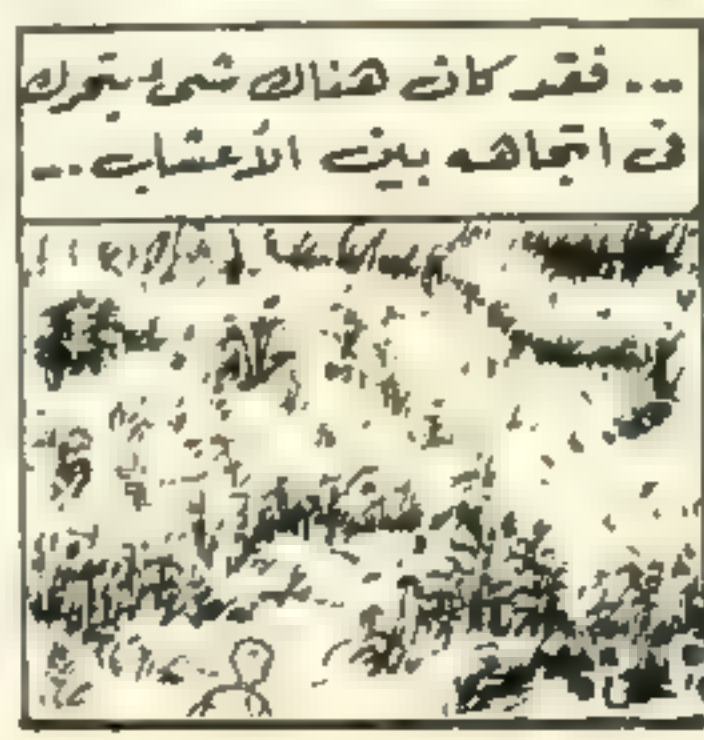 ... فقد كان هناك شئ يتحرك
فى اتجاهه بين الأعشاب ...